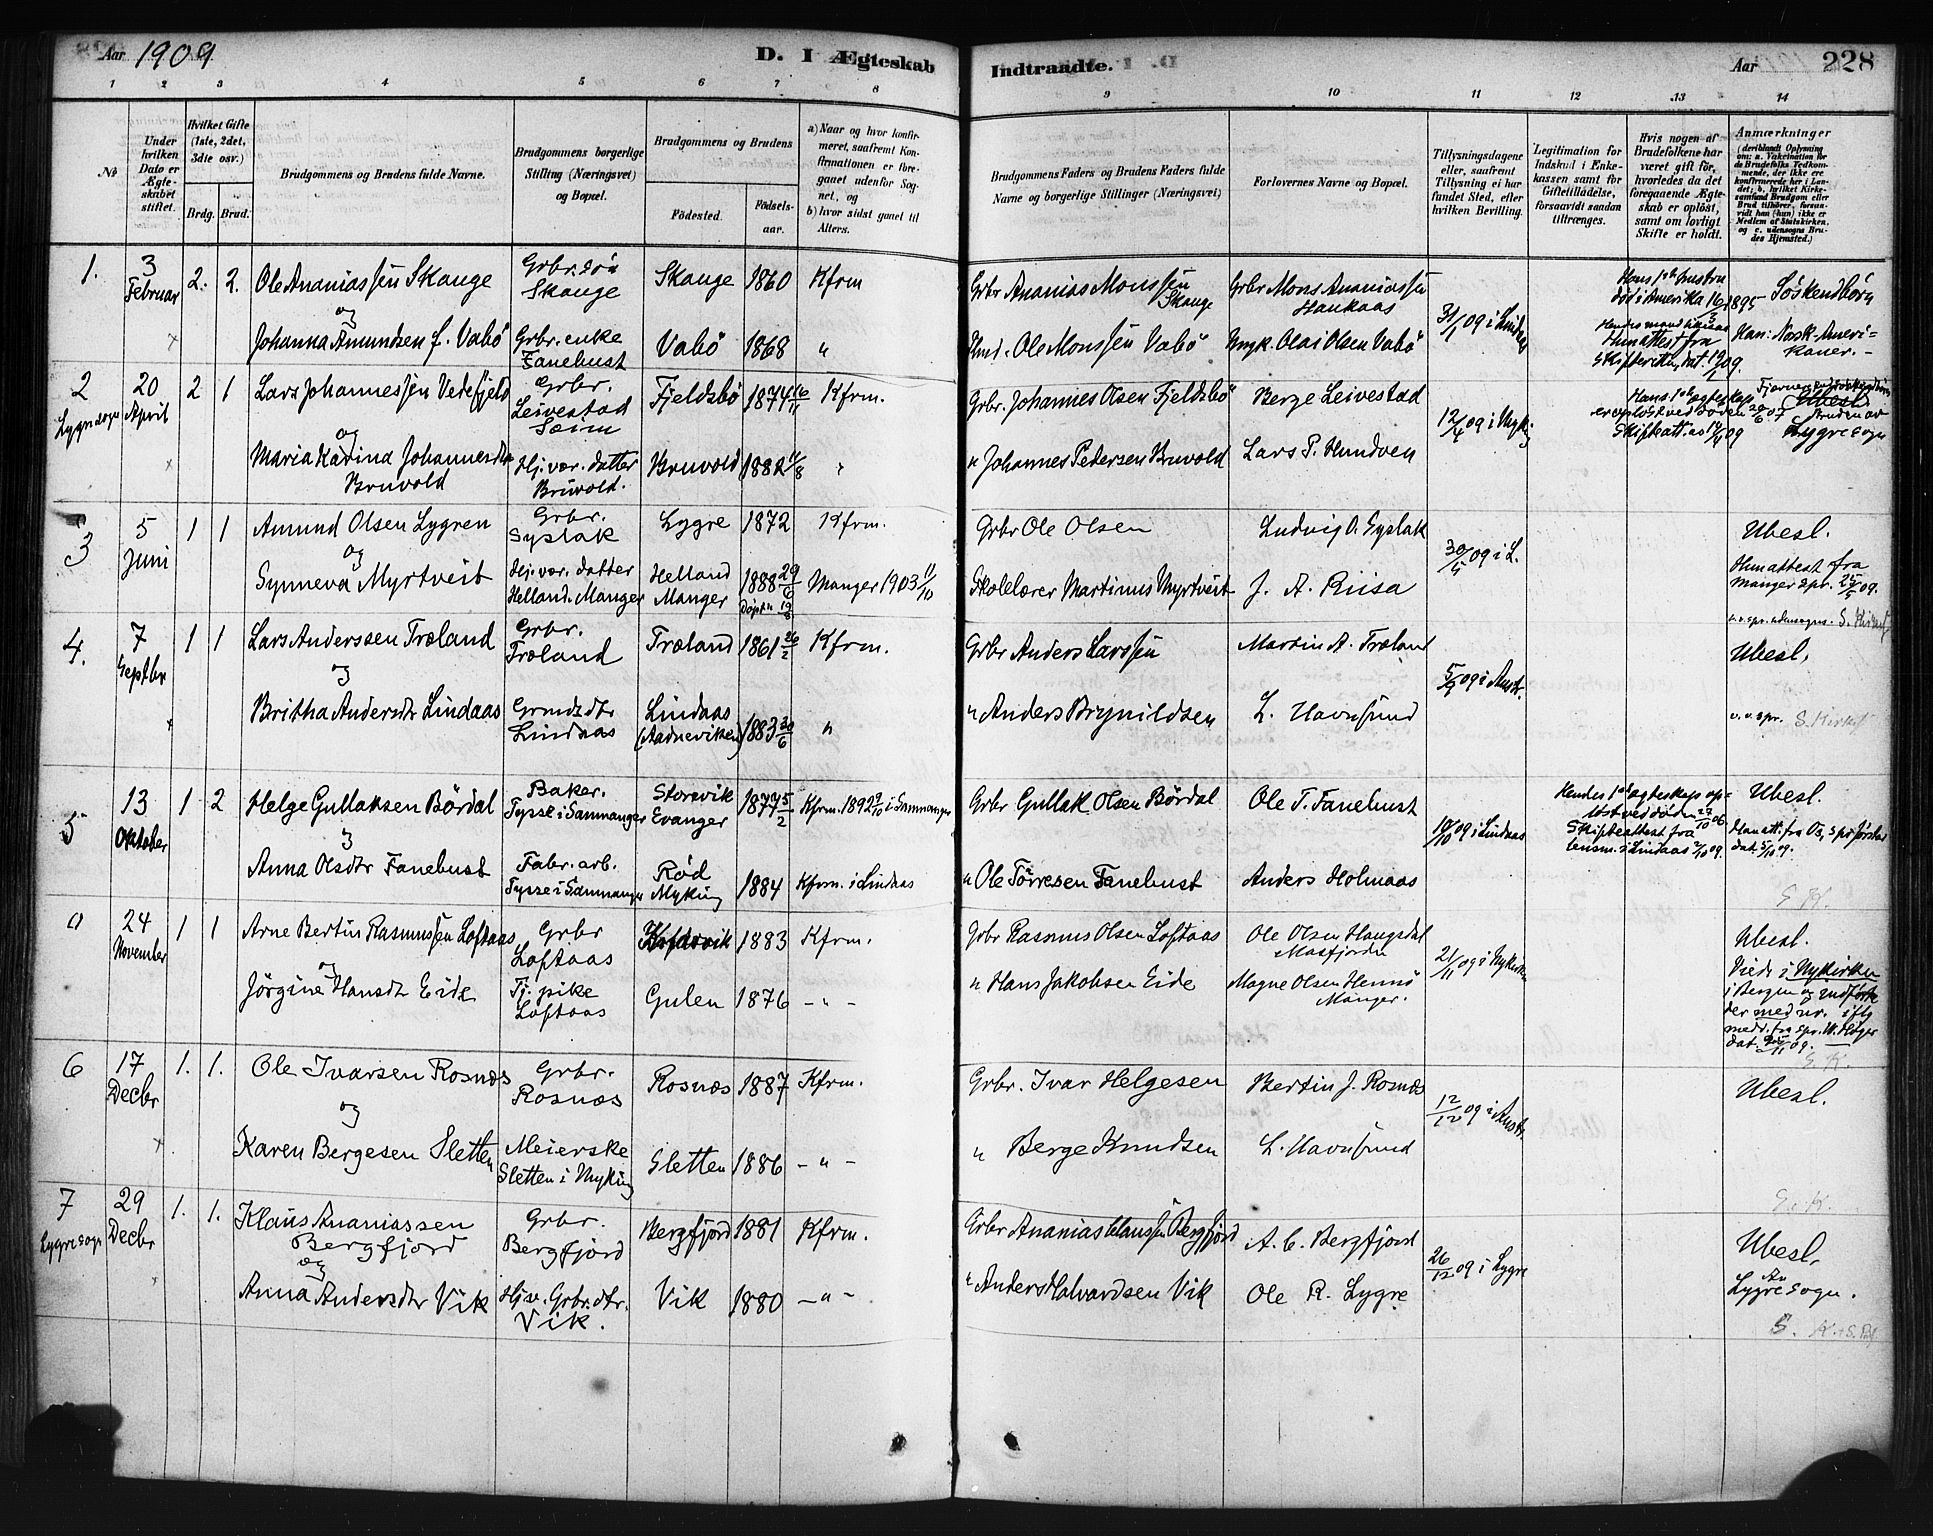 Aar 1909
D. I Ægteskab Indtraadte.
Aar 228
1 2 3 4 5 6 7 8 9 10 11 12 13 14
№
Under hvilken Dato er Ægteskabet stiftet.
Hvilket Gifte (1ste, 2det, 3die osv.)
Brdg. Brud.
Brudgommens og Brudens fulde Navne.
Brudgommens borgerlige Stilling (Næringsvei) og Bopæl.
Brudgommens og Brudens
Fødested.
Fødselsaar.
a) Naar og hvor konfirmeret, saafremt Konfirmationen er foregaaet udenfor Sognet, og
b) hvor sidst gaaet til Alters.
Brudgommens Faders og Brudens Faders fulde Navne og borgerlige Stillinger (Næringsvei)
Forlovernes Navne og Bopæl.
Tillysningsdagene eller, saafremt Tillysning ei har fundet Sted, efter hvilken Bevilling.
Legitimation for Indskud i Enkekassen samt for Giftetilladelse, forsaavidt saadan tiltrænges.
Hvis nogen af Brudefolkene har været gift før, hvorledes da det foregaaende Ægteskab er opløst, samt om lovligt Skifte er holdt.
Anmærkninger (deriblandt Oplysning om: a. Vakcination for de Brudefolks Vedkommende, der ikke ere konfirmerede her i Landet; b. hvilket Kirkesamfund Brudgom eller Brud tilhører, forsaavidt han (hun) ikke er Medlem af Statskirken, og c. udensogns Brudes Hjemsted.)
1. 3 Februar 2. 2. Ole Ananiassen Skauge Grbr. søn Skauge Skauge 1860 Kfrm Grbr Ananias Monssen Skauge Grbr Mons Ananiassen Haukaas 31/1 09 i Lindaas Hans 1ste hustru død i Amerika 16/3 1895 Søskendbørn
og
Johanna Amundsen f. Vabö Grbr. enke Fanebust Vabö 1868 " Hmd. Ole Monssen Vabö Myk. Olai Olsen Vabö Skifteretten, dat. Han: Norsk-Amerikaner. -
2 Lygre sogn 20 April 2 1 Lars Johannessen Vedefjeld Grbr. Leivestad Sæim Fjeldsbö 1874 16/11 Kfrm. Grbr. Johannes Olsen Fjeldsbö Berge Leivestad 12/4 09 i Myking Hans 1ste egteskap er opløst ved døden 20/6 07 Skifteatt. Bruden av Lygre sogn
og
Maria Karina Johannesdtr Bruvold Hj. vær. datter Bruvold. Bruvold 1882 11/8 " " Johannes Pedersen Bruvold Lars P. Hundven
3 5 Juni 1 1 Amund Olsen Lygren Grbr. Syslak Lygre 1872 Kfrm. Grbr Ole Olsen Ludvig O. Syslak 30/5 09 i L. Ubesl.
og
Synneva Myrtveit Hj. vær. datter Helland. Manger Helland Manger 1888 29/6 Døpt Manger 1903 11/10 Skolelærer Martinus Myrtveit J. A. Riisa Hun attest fra Manger spr. 25/5 09.
4. 7 Septbr 1 1 Lars Anderssen Træland Grbr. Træland Træland 1861 26/2 Kfrm. Grbr Anders Larssen Martin A. Træland 5/9 09 i Austr. Ubesl.
og
Britha Andersdtr Lindaas Grmdsdtr Lindaas Lindaas (Aadneviken) 1883 30/6 " " Anders Brynildsen L. Havnsund
5 13 Oktober 1 2 Helge Gullaksen Børdal Baker. Tysse i Samnanger Storevik Evanger 1877 5/2 Kfrm. 1892 9/10 i Samnanger Grbr Gullak Olsen Børdal Ole T. Fanebust 10/10 09 i Lindaas Hendes 1ste egteskap opløst ved døden 23/10 06. Skifteattest fra lensm. i Lindaas 2/10 09. Ubesl.
og
Anna Olsdtr Fanebust Fabr. arb. Tysse i Samnanger Rød Myking 1884 Kfrm. i Lindaas " Ole Törresen Fanebust Anders Holmaas Han att. fra Os, dat. 5/10 09.
0 24 November 1 1 Arne Bertin Rasmussen Loftaas Grbr Loftaas 1883 Kfrm. Grbr Rasmus Olsen Loftaas Ole Olsen Haugsdal Masfjorden 21/11 09 i Nykirken Ubesl.
og
Jörgine Hansdtr Eide Tj. pike Loftaas Gulen 1876 - " - " Hans Jakobsen Eide Magne Olsen Hennö Manger. Viede i Nykirken i Bergen og indførte der med nr. iflg medd. fra spr. W. Høyer dat. 25/11 09.
6 17 Decbr 1. 1. Ole Ivarsen Rosnæs Grbr. Rosnæs Rosnæs 1887 Kfrm. Grbr. Ivar Helgesen Bertin J. Rosnæs 12/12 09 i Austr. Ubesl.
og
Karen Bergesen Sletten Meierske Sletten i Myking Sletten 1886 - " - " Berge Knudsen L. Havnsund
7 Lygre sogn 29 Decbr 1. 1. Klaus Ananiassen Bergfjord Grbr. Bergfjord Bergfjord 1881 Kfrm. Grbr Ananias Claussen Bergfjord A. C. Bergfjord 26/12 09 i Lygre Ubesl.
og
Anna Andersdtr Vik Hjv. Grbr. dtr. Vik. Vik 1880 - " - " Anders Halvardsen Vik Ole R. Lygre Av Lygre sogn.